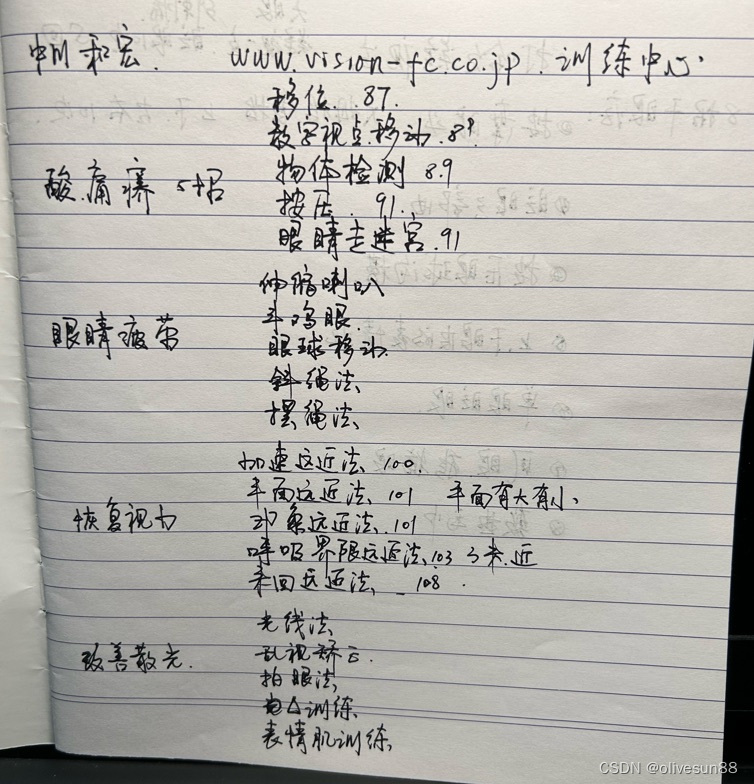 中川和宏. www.vision-fc.co.jp.训练中心.
移位. 87.
数字视点移动. 89.
物体检测 89
酸.痛.痒 5招
按压. 91.
眼睛走迷宫. 91
伸缩喇叭
斗鸡眼.
眼睛疲劳
眼球移动.
斜绳法
摆绳法
加速远近法 100.
平面远近法. 101 平面有大有小.
恢复视力
对象远近法. 101
呼吸界限远近法. 103 3米.近
来回远近法 108.
光线法
改善散光.
乱视矫正.
拍眼法
训练
表情肌训练
CSDN @olivesun88